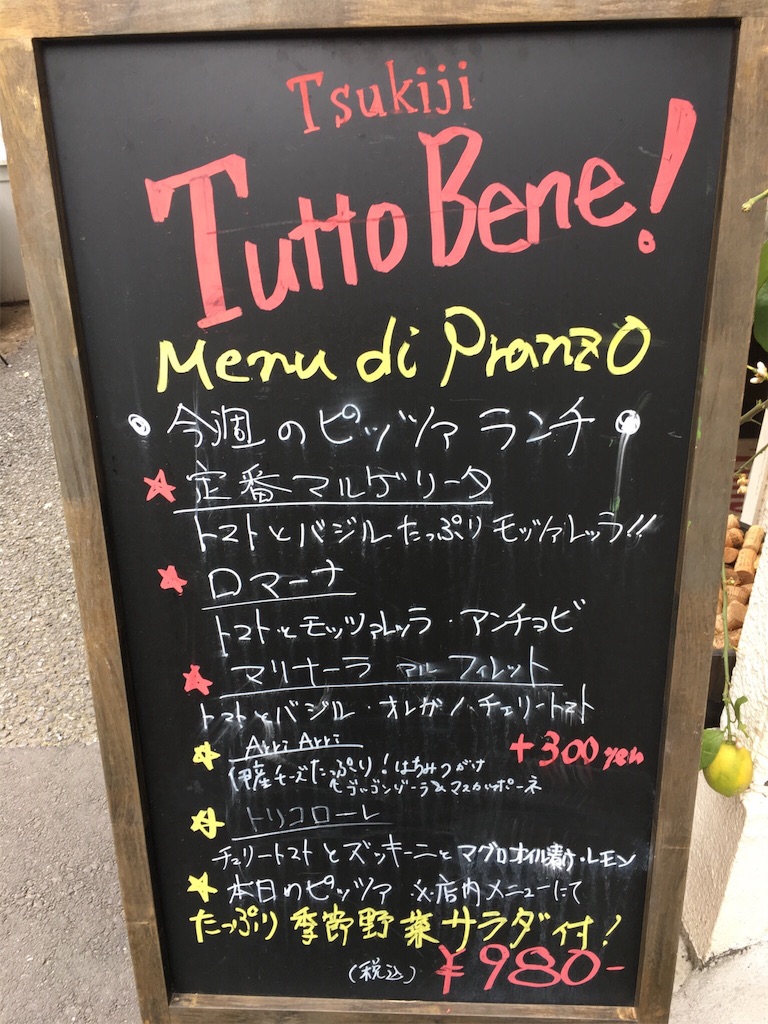 Tsukiji
Tutto Bene!
Menu di Pranzo
今週のピッツァランチ
★ 定番マルゲリータ
トマトとバジルたっぷりモッツァレッラ!!
★ ロマーナ
トマトとモッツァレッラ・アンチョビ
★ マリナーラ アル フィレット
トマトとバジル・オレガノ・チェリートマト
★ Arri Arri +300yen
伊産チーズたっぷり!はちみつがけ
ゴルゴンゾーラ&マスカルポーネ
★ トリコローレ
チェリートマトとズッキーニとマグロオイル漬け・レモン
★ 本日のピッツァ ※店内メニューにて
たっぷり季節野菜サラダ付!
(税込) ¥980-